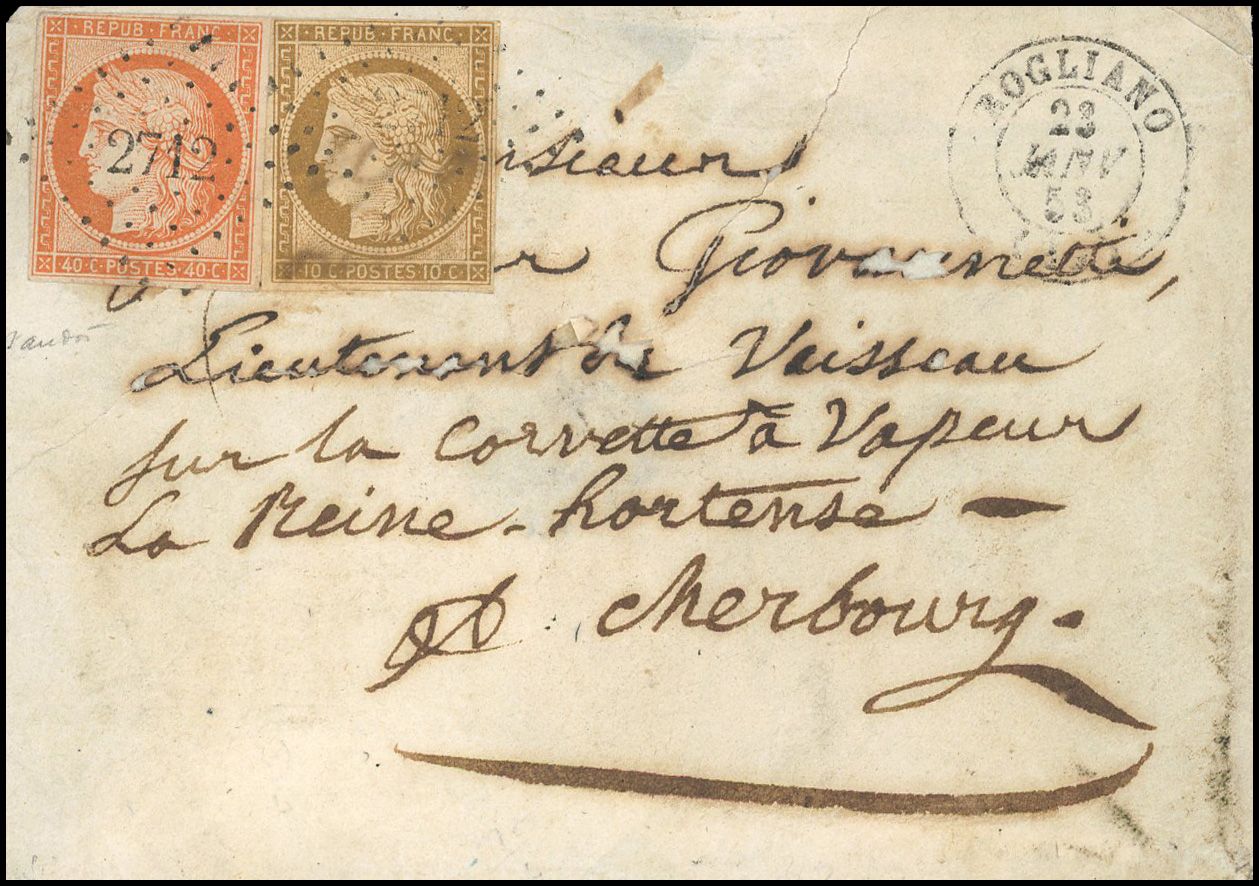 REPUB·FRANC
2712
40·C·POSTES·40·C·
REPUB·FRANC
10·C·POSTES·10·C·
ROGLIANO
23
JANV
53
Giovannetti,
Lieutenant de Vaisseau
sur la Corvette à Vapeur
La Reine-hortense -
cherbourg.